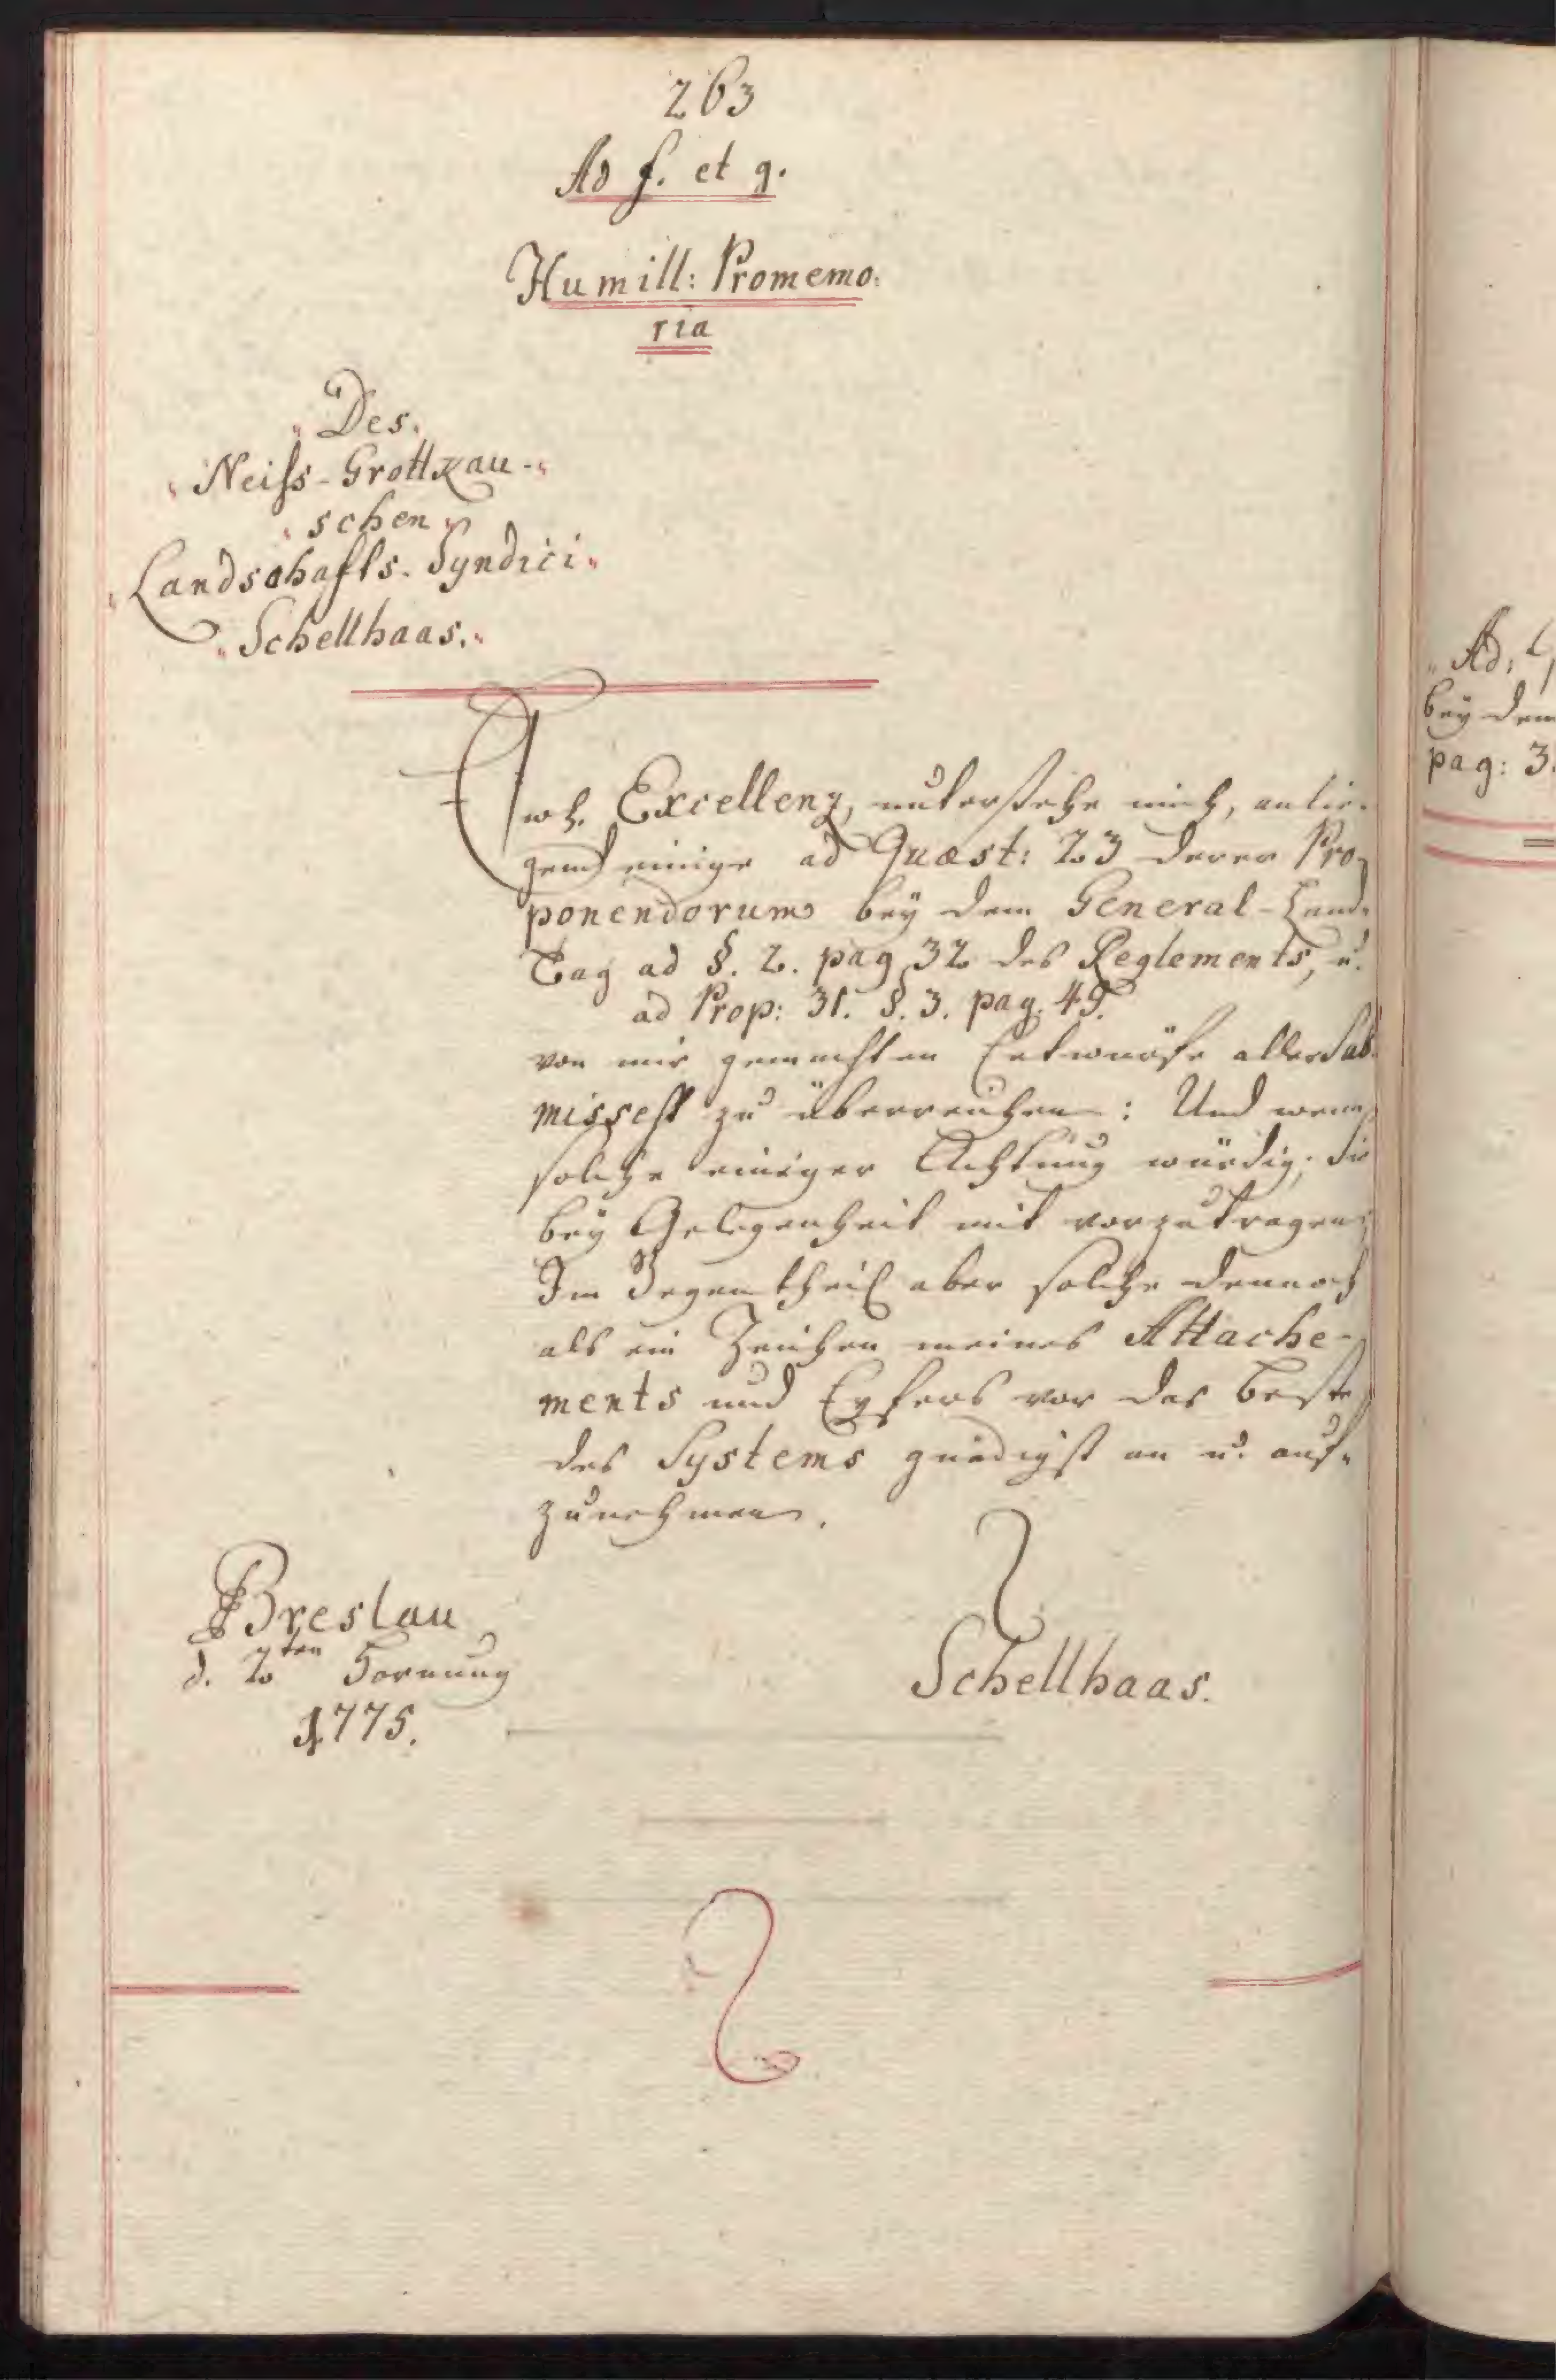 263
Ad f. et g.
Humill: Promemo:
ria
Des.
Neiss-Grottkau-
schen
Landschafts-Syndici
Schellhaas.
Ewh. Excellenz, unterstehe mich, anlie-
gend einige ad Quæst: 23 derer Pro-
ponendorum bey dem General-Land-
Tag ad §. 2. pag 32 des Reglements, u.
ad Prop: 31. §. 3. pag. 49.
von mir gemachten Entwürfe aller Sub-
missest zu überreichen: Und wenn
solche einiger Achtung würdig; sie
bey Gelegenheit mit vorzutragen;
Im Gegentheil aber solche dennoch
als ein Zeichen meines Attache-
ments und Eyfers vor das beste
des Systems gnädigst an u. auf-
zunehmen.
Breslau
d. 2ten Hornung
1775.
Schellhaas.
Ad:
bey dem
pag: 3